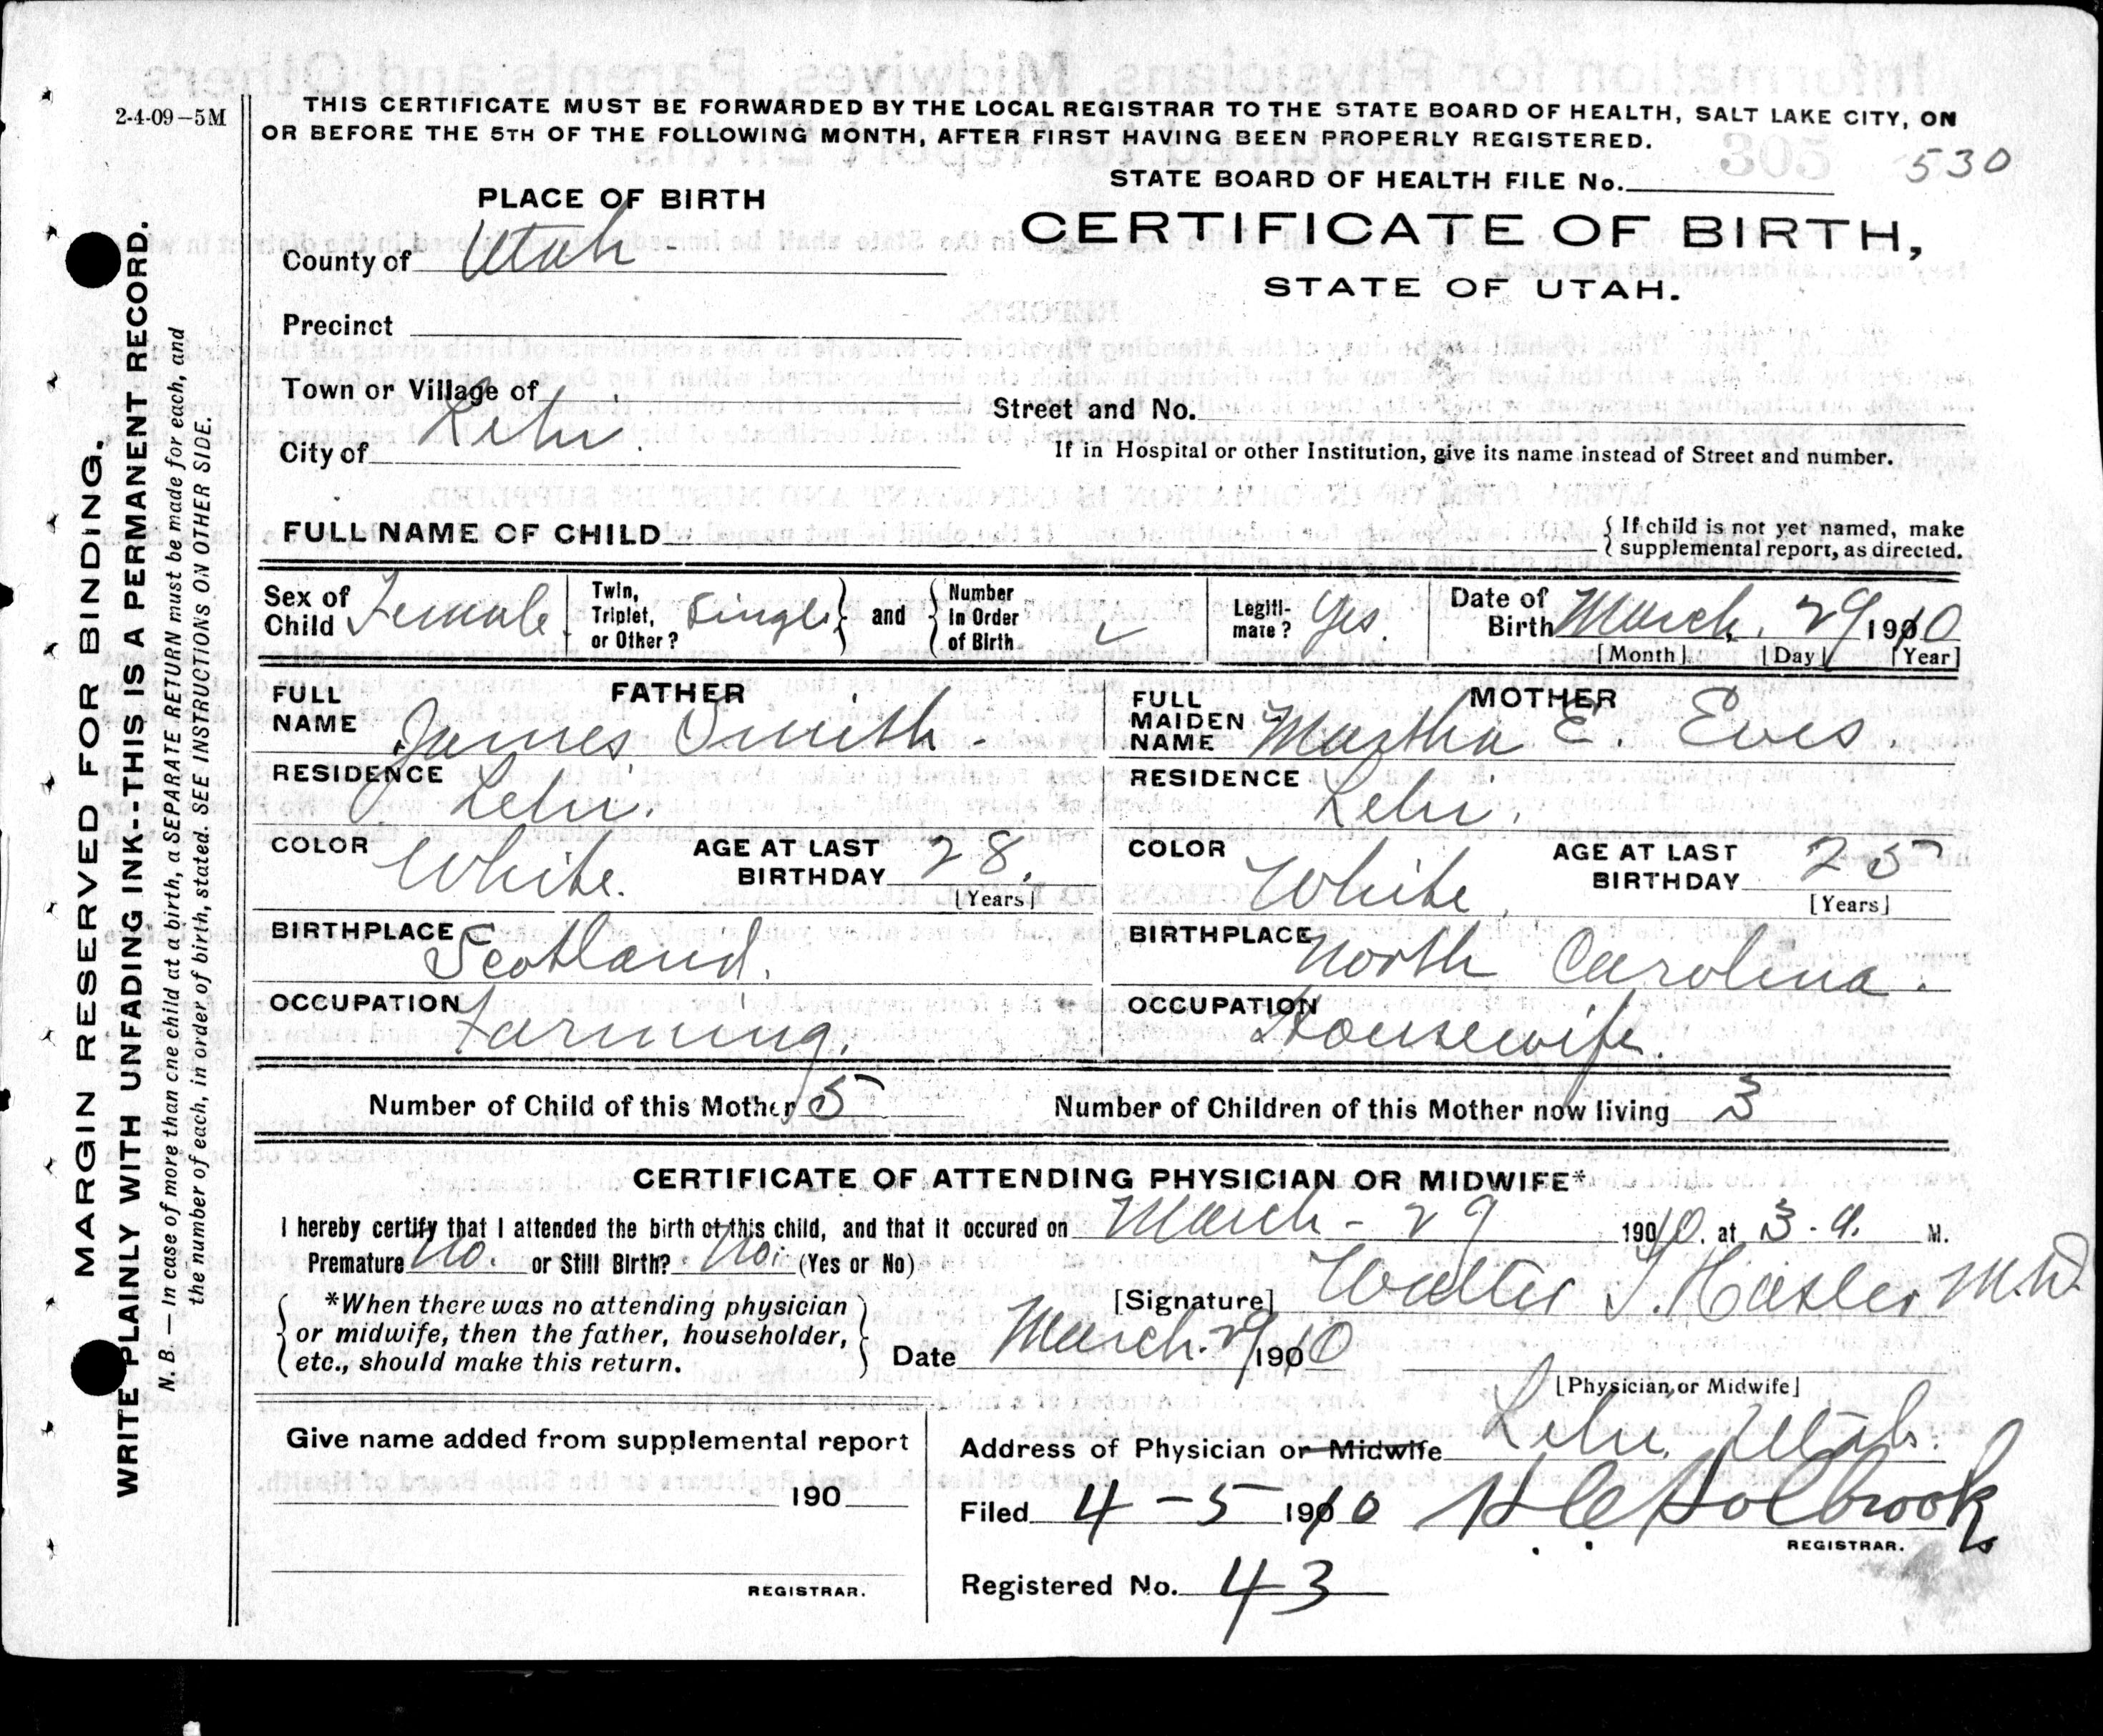 2-4-09-5M
THIS CERTIFICATE MUST BE FORWARDED BY THE LOCAL REGISTRAR TO THE STATE BOARD OF HEALTH, SALT LAKE CITY, ON
OR BEFORE THE 5TH OF THE FOLLOWING MONTH, AFTER FIRST HAVING BEEN PROPERLY REGISTERED.
STATE BOARD OF HEALTH FILE No. 530
PLACE OF BIRTH
CERTIFICATE OF BIRTH,
STATE OF UTAH.
County of Utah
Precinct
Town or Village of
Street and No.
City of Lehi.
If in Hospital or other Institution, give its name instead of Street and number.
FULL NAME OF CHILD
{ If child is not yet named, make
supplemental report, as directed.
Sex of Child Female. Twin, Triplet, or Other? Single } and { Number In Order of Birth ✓ Legiti-mate? Yes. Date of Birth March. 29 1910
[Month] [Day] [Year]
FATHER
FULL NAME James Smith -
MOTHER
FULL MAIDEN NAME Martha E. Eves.
RESIDENCE Lehi.
RESIDENCE Lehi.
COLOR White. AGE AT LAST BIRTHDAY 28. [Years]
COLOR White. AGE AT LAST BIRTHDAY 25 [Years]
BIRTHPLACE Scotland.
BIRTHPLACE North Carolina.
OCCUPATION Farming.
OCCUPATION Housewife.
Number of Child of this Mother 5 Number of Children of this Mother now living 3
CERTIFICATE OF ATTENDING PHYSICIAN OR MIDWIFE*
I hereby certify that I attended the birth of this child, and that it occured on March - 29 1910. at 3 - a. M.
Premature No. or Still Birth? No. (Yes or No)
[Signature] Walter T. Hasler M.D.
{ *When there was no attending physician
or midwife, then the father, householder,
etc., should make this return. }
Date March. 29 1910
[Physician or Midwife]
Give name added from supplemental report
190
REGISTRAR.
Address of Physician or Midwife Lehi Utah.
Filed 4 - 5 1910 H C Holbrook
REGISTRAR.
Registered No. 43
MARGIN RESERVED FOR BINDING.
WRITE PLAINLY WITH UNFADING INK--THIS IS A PERMANENT RECORD.
N. B. — In case of more than one child at a birth, a SEPARATE RETURN must be made for each, and
the number of each, in order of birth, stated. SEE INSTRUCTIONS ON OTHER SIDE.